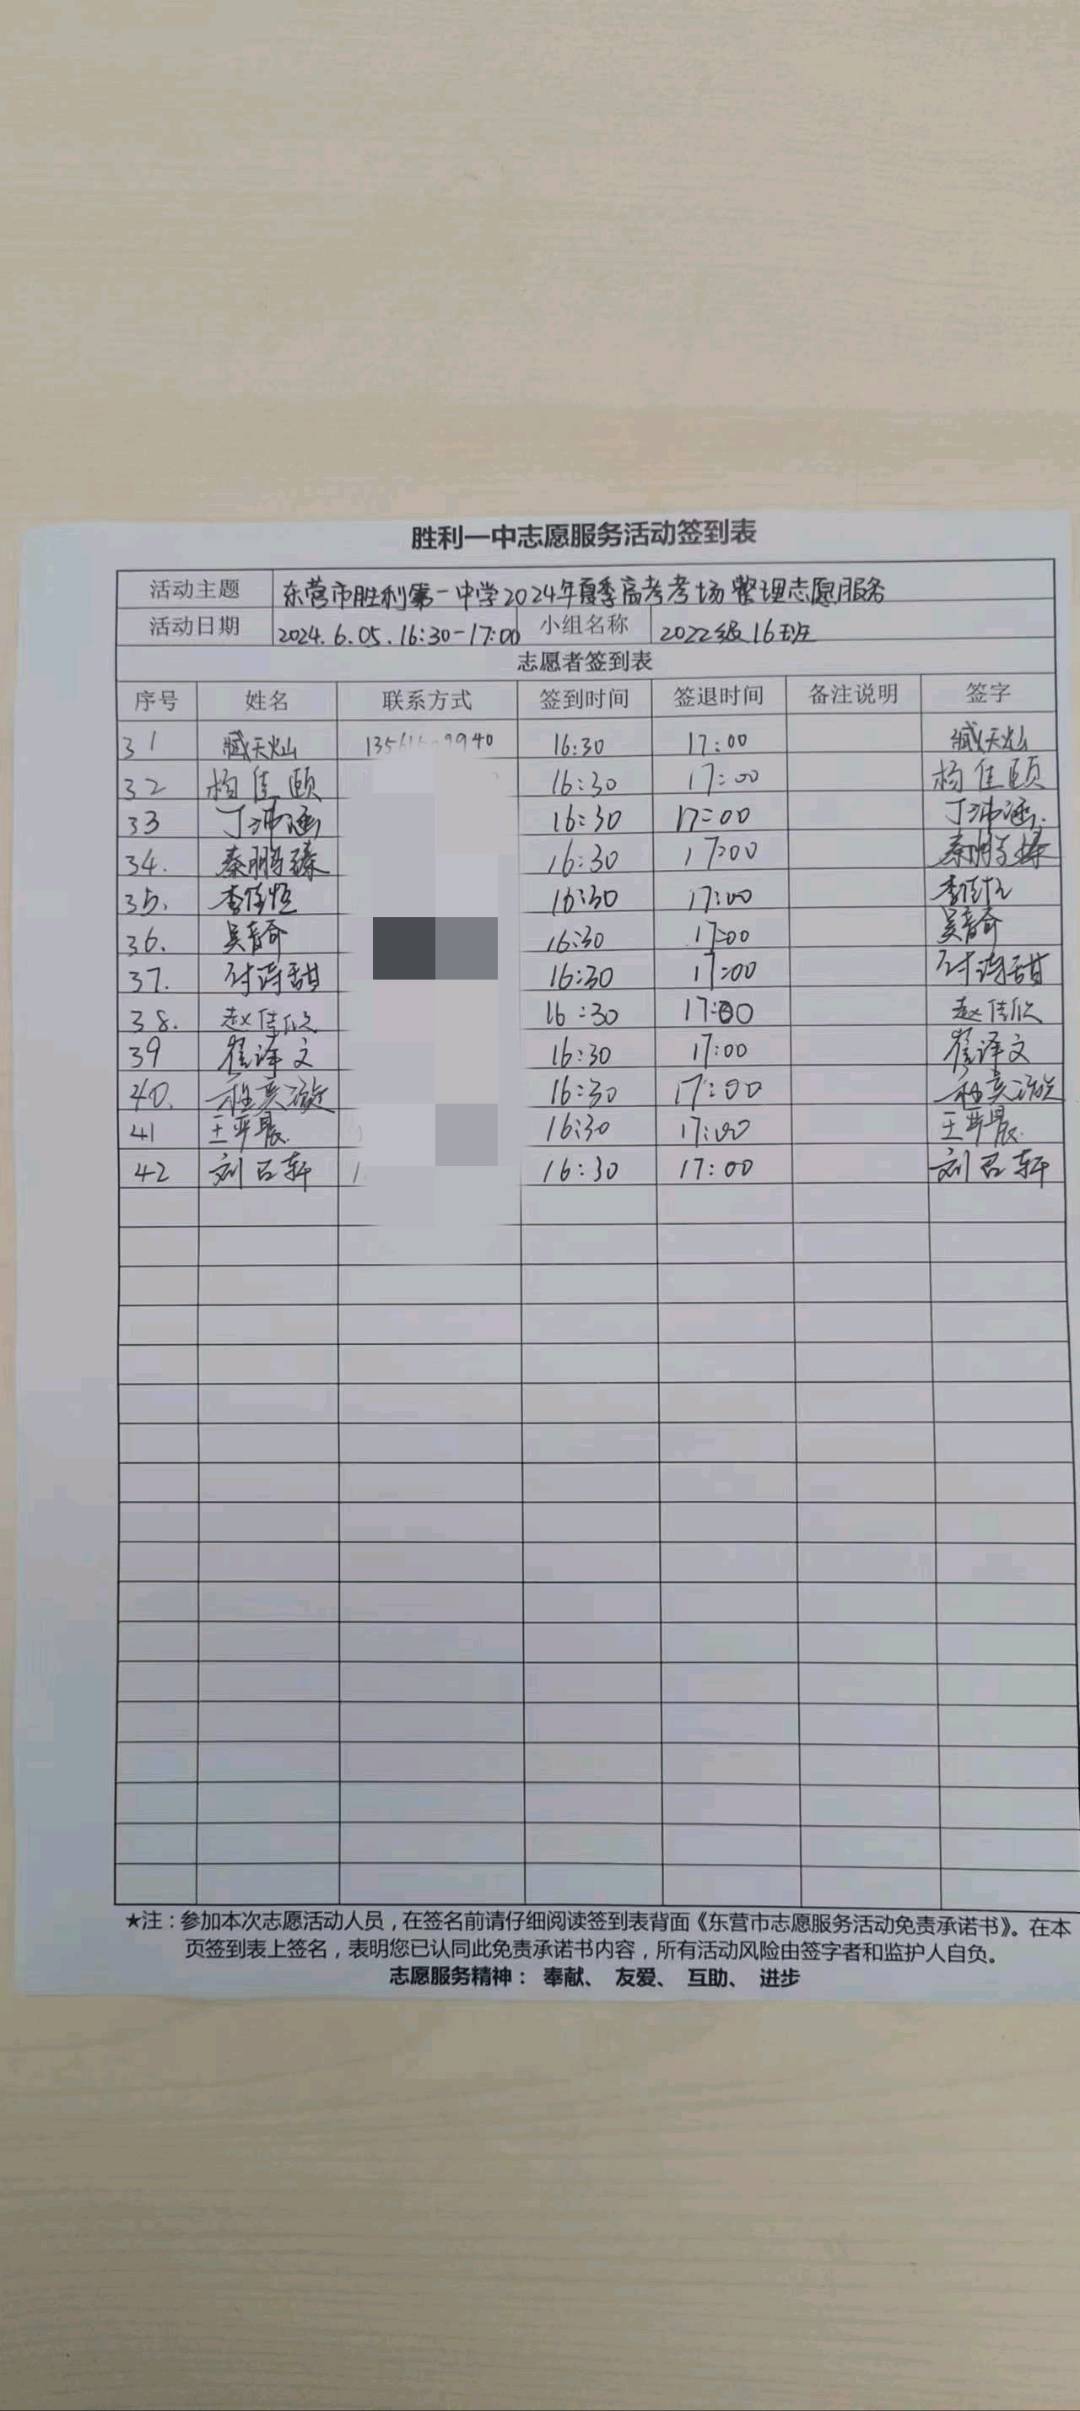 胜利一中志愿服务活动签到表
活动主题 东营市胜利第一中学2024年夏季高考考场整理志愿服务
活动日期 2024.6.05.16:30-17:00 小组名称 2022级16班
志愿者签到表
序号 姓名 联系方式 签到时间 签退时间 备注说明 签字
31 臧天灿 16:30 17:00 臧天灿
32 杨佳颐 16:30 17:00 杨佳颐
33 丁沛涵 16:30 17:00 丁沛涵
34. 秦鹏臻 16:30 17:00 秦鹏臻
35. 李佳恒 16:30 17:00 李佳恒
36. 吴奇 16:30 17:00 吴奇
37. 付诗甜 16:30 17:00 付诗甜
38. 赵佳欣 16:30 17:00 赵佳欣
39 崔译文 16:30 17:00 崔译文
40. 16:30 17:00
41 王晨 16:30 17:00 王晨
42 刘召轩 16:30 17:00 刘召轩
★注：参加本次志愿活动人员，在签名前请仔细阅读签到表背面《东营市志愿服务活动免责承诺书》。在本
页签到表上签名，表明您已认同此免责承诺书内容，所有活动风险由签字者和监护人自负。
志愿服务精神： 奉献、 友爱、 互助、 进步